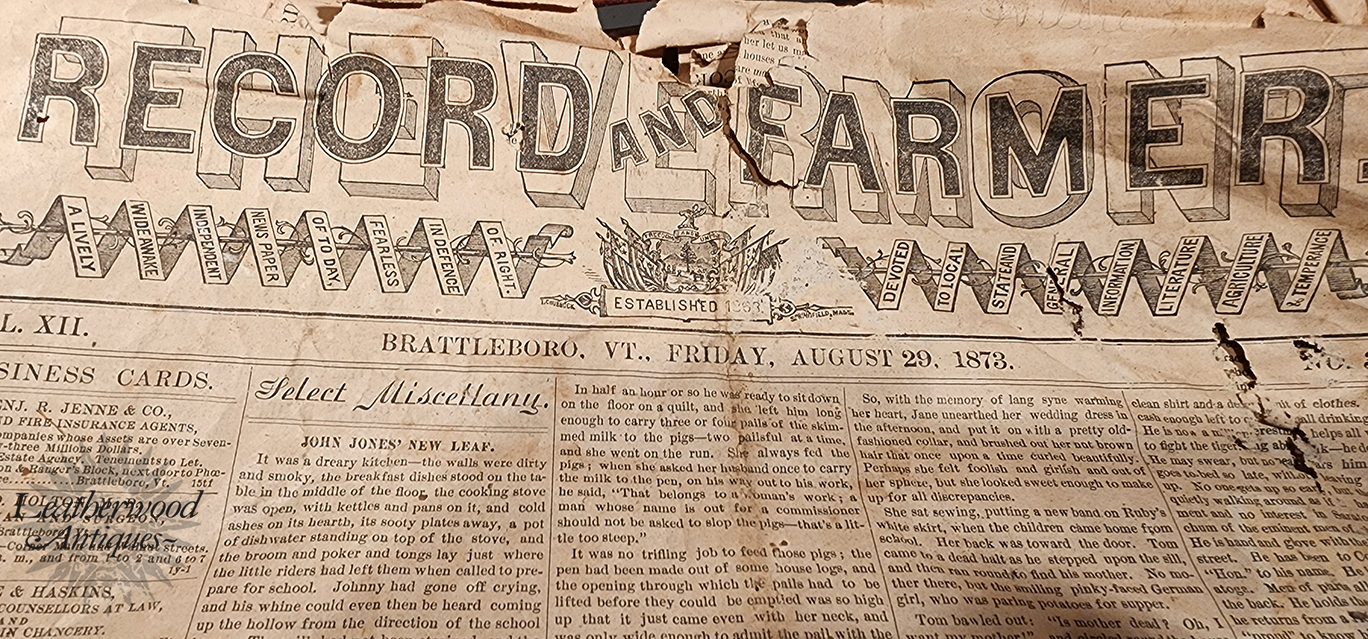 THE VERMONT
RECORD AND FARMER.
A LIVELY WIDE AWAKE INDEPENDENT NEWS PAPER OF TO DAY, FEARLESS IN DEFENCE OF RIGHT.
DEVOTED TO LOCAL STATE AND GENERAL INFORMATION LITERATURE AGRICULTURE & TEMPERANCE
ESTABLISHED 1863.
SPRINGFIELD, MASS.
L. XII.
BRATTLEBORO, VT., FRIDAY, AUGUST 29, 1873.
NO.
SINESS CARDS.
ENJ. R. JENNE & CO.,
ND FIRE INSURANCE AGENTS,
ompanies whose Assets are over Seven-
y-three Millions Dollars.
Estate Agency. Tenements to Let.
on & Ranger's Block, next door to Phœ-
Brattleboro, Vt. 15tf
HOLTON, M.D.
AND SURGEON,
Brattleboro
streets.
m., and from 1 to 2 and 6 to 7
1y-1
E & HASKINS,
COUNSELLORS AT LAW,
AND
IN CHANCERY.
Leatherwood
Antiques~
Select Miscellany.
JOHN JONES' NEW LEAF.
It was a dreary kitchen—the walls were dirty
and smoky, the breakfast dishes stood on the ta-
ble in the middle of the floor, the cooking stove
was open, with kettles and pans on it, and cold
ashes on its hearth, its sooty plates away, a pot
of dishwater standing on top of the stove, and
the broom and poker and tongs lay just where
the little riders had left them when called to pre-
pare for school. Johnny had gone off crying,
and his whine could even then be heard coming
up the hollow from the direction of the school
In half an hour or so he was ready to sit down
on the floor on a quilt, and she left him long
enough to carry three or four pails of the skim-
med milk to the pigs—two pailsful at a time,
and she went on the run. She always fed the
pigs; when she asked her husband once to carry
the milk to the pen, on his way out to his work,
he said, "That belongs to a woman's work; a
man whose name is out for a commissioner
should not be asked to slop the pigs—that's a lit-
tle too steep."
It was no trifling job to feed those pigs; the
pen had been made out of some house logs, and
the opening through which the pails had to be
lifted before they could be emptied was so high
up that it just came even with her neck, and
was only wide enough to admit the pail with the
So, with the memory of lang syne warming
her heart, Jane unearthed her wedding dress in
the afternoon, and put it on with a pretty old-
fashioned collar, and brushed out her nut brown
hair that once upon a time curled beautifully.
Perhaps she felt foolish and girlish and out of
her sphere, but she looked sweet enough to make
up for all discrepancies.
She sat sewing, putting a new band on Ruby's
white skirt, when the children came home from
school. Her back was toward the door. Tom
came to a dead halt as he stepped upon the sill,
and then ran round to find his mother. No mo-
ther there, but a smiling pinky-faced German
girl, who was paring potatoes for supper.
Tom bawled out: "Is mother dead? Oh, I
want my mother!"
clean shirt and a of clothes.
cash enough left to all drinking
He is no helps all
to fight the tiger
He may swear, but no
goes to bed late, without
up. No one gets up so early, but
quietly walking around
men and the interest in
some of the men of
He is hand and glove with the
street. He has been to
"Hon." to his name. He
atoge. Men of
the back. He holds
he returns from a